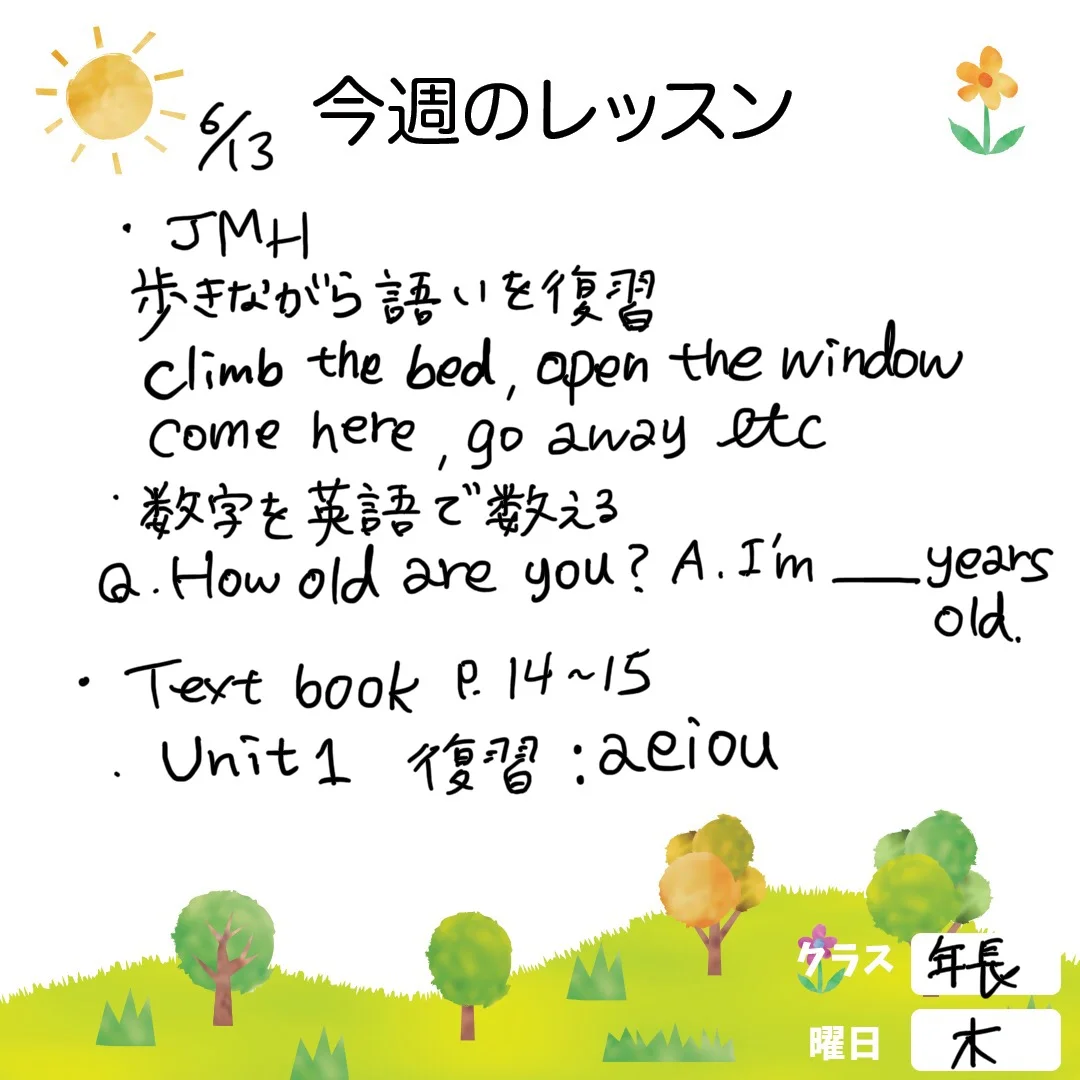 今週のレッスン
6/13
・JMH
歩きながら語いを復習
climb the bed, open the window
come here, go away etc
・数字を英語で数える
Q. How old are you? A. I'm ___ years
old.
・Text book P. 14~15
・Unit1 復習:aeiou
クラス 年長
曜日 木